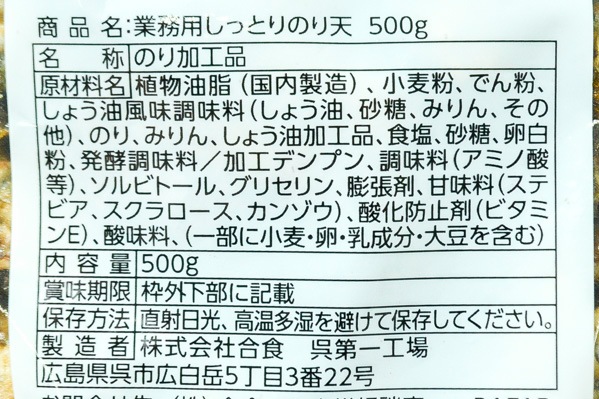 商品名:業務用しっとりのり天 500g
名称 のり加工品
原材料名 植物油脂(国内製造)、小麦粉、でん粉、
しょう油風味調味料(しょう油、砂糖、みりん、その
他)、のり、みりん、しょう油加工品、食塩、砂糖、卵白
粉、発酵調味料/加工デンプン、調味料(アミノ酸
等)、ソルビトール、グリセリン、膨張剤、甘味料(ステ
ビア、スクラロース、カンゾウ)、酸化防止剤(ビタミ
ンE)、酸味料、(一部に小麦・卵・乳成分・大豆を含む)
内容量 500g
賞味期限 枠外下部に記載
保存方法 直射日光、高温多湿を避けて保存してください。
製造者 株式会社合食 呉第一工場
広島県呉市広白岳5丁目3番22号